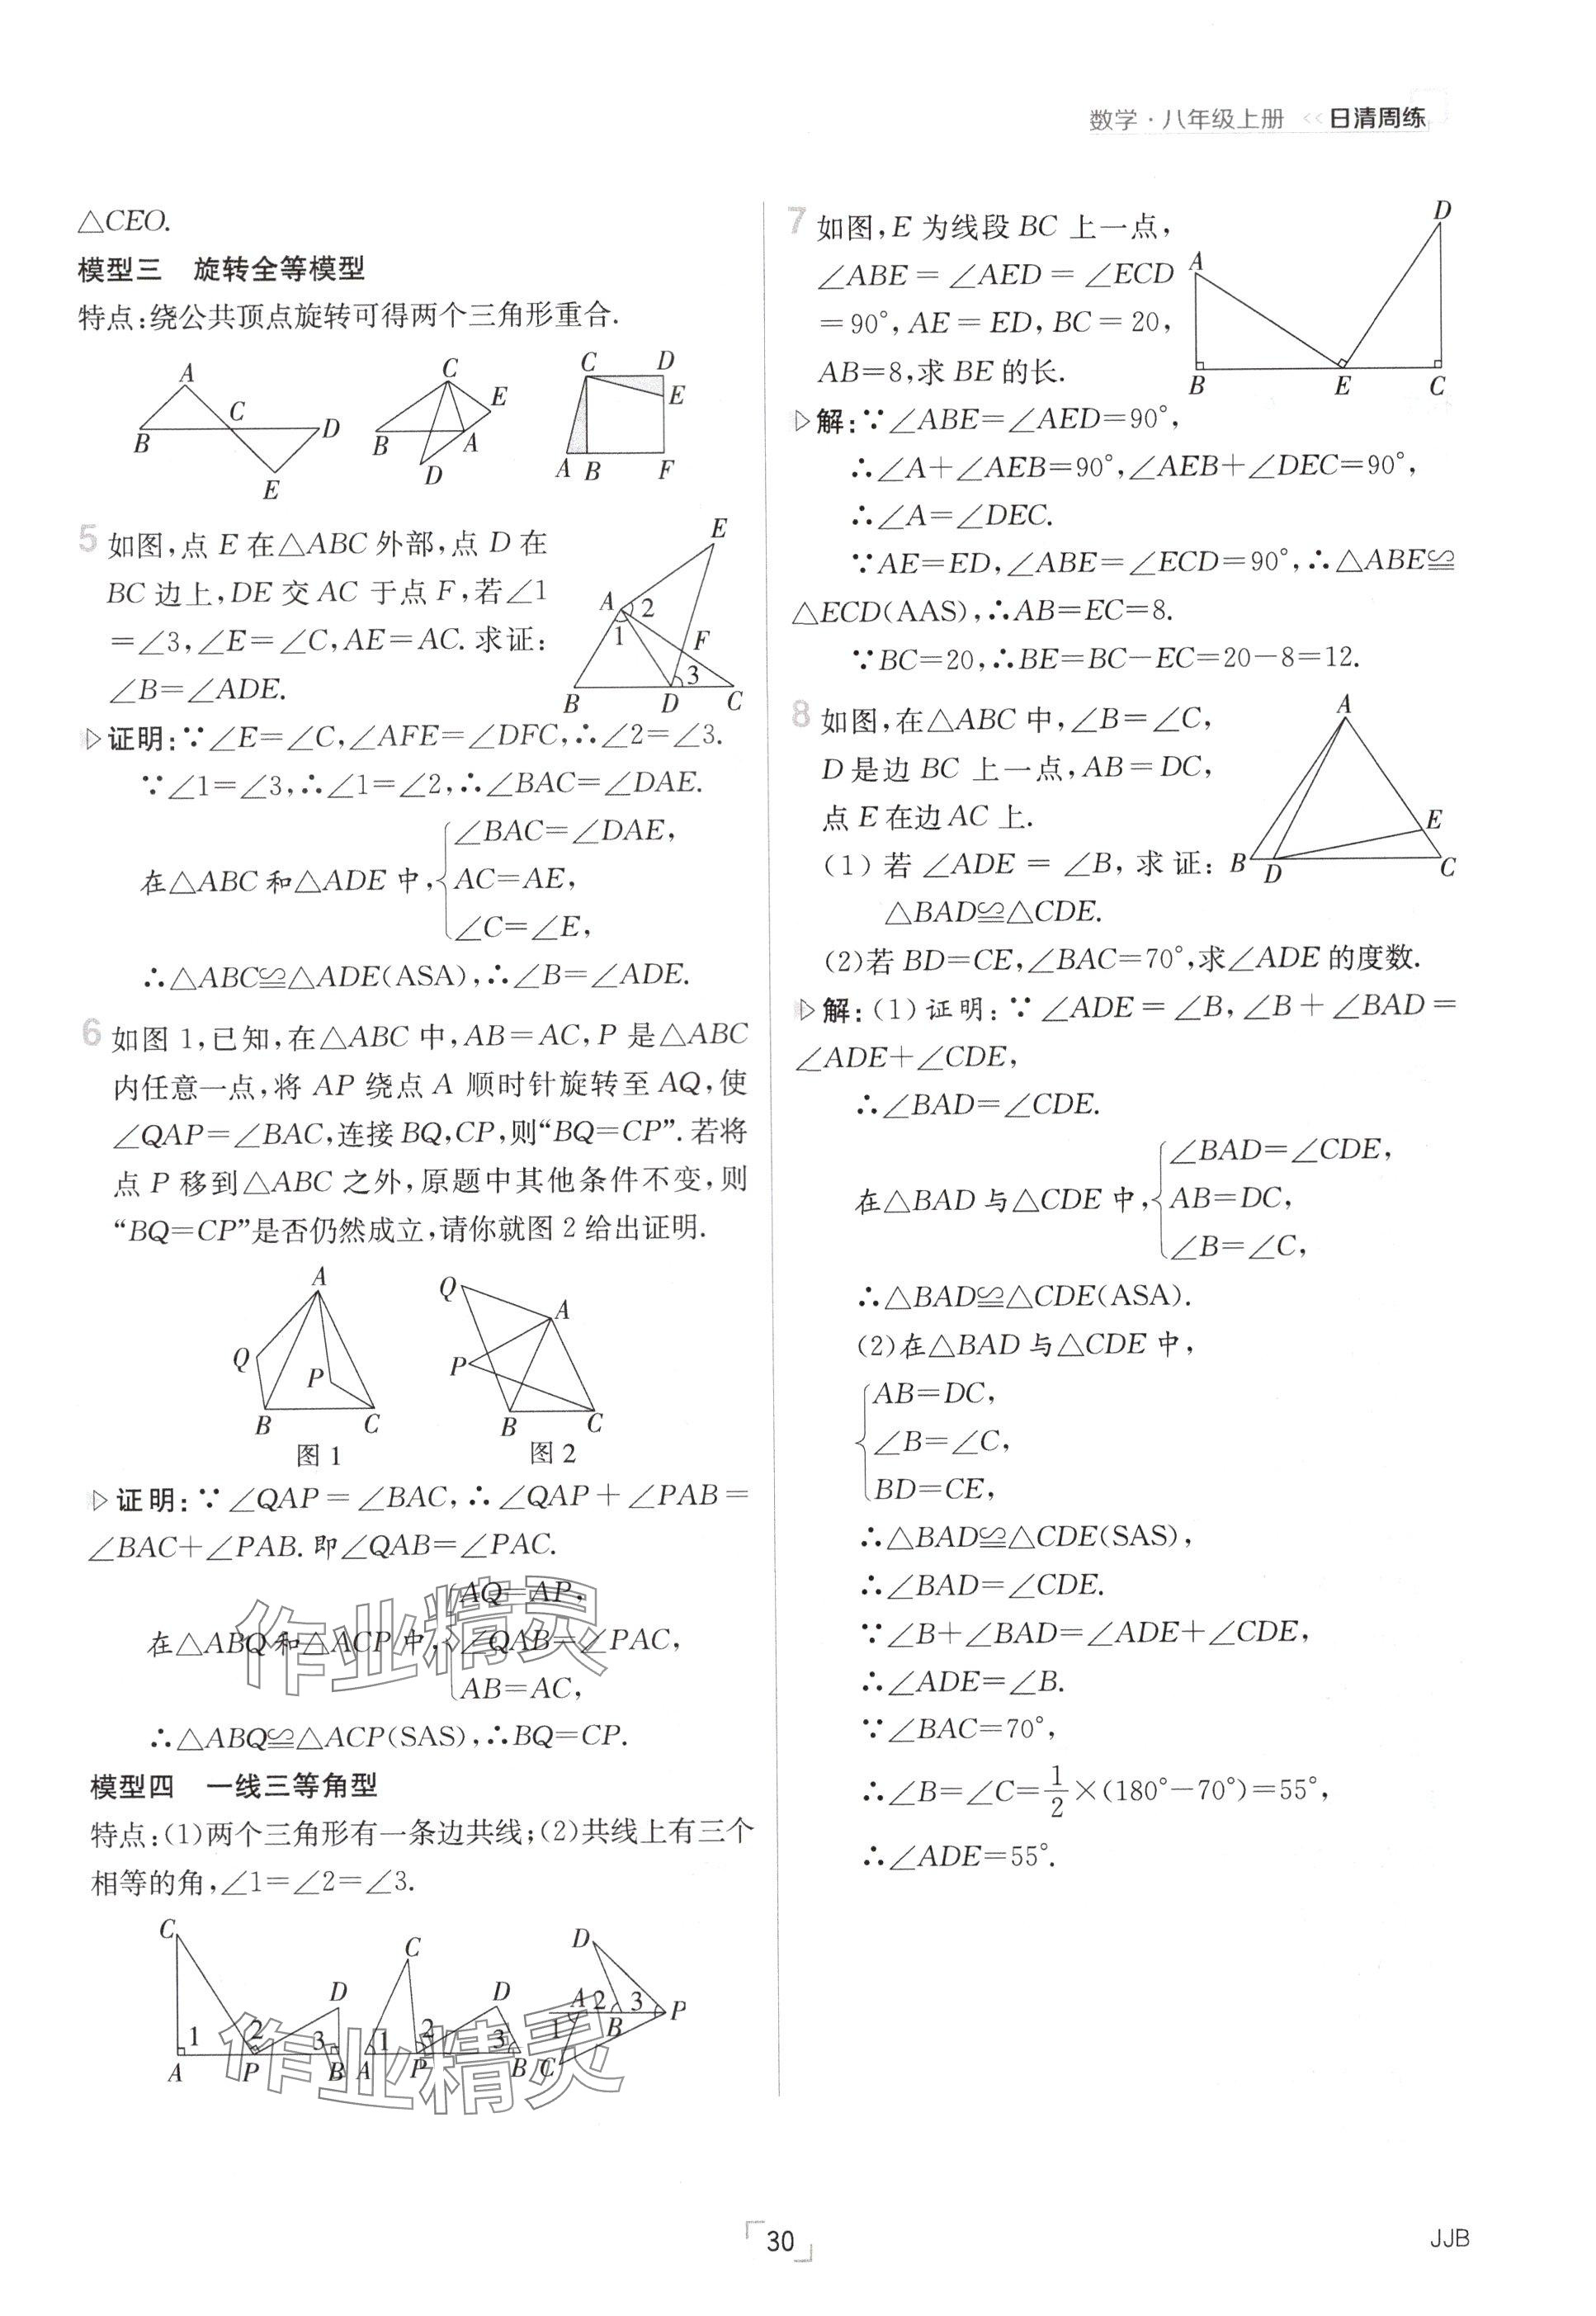 数学·八年级上册 << 日清周练
△CEO.
模型三 旋转全等模型
特点:绕公共顶点旋转可得两个三角形重合.
A
B
C
D
E
C
E
B
A
D
C
D
E
A
B
F
5 如图,点 E 在△ABC 外部,点 D 在
BC 边上,DE 交 AC 于点 F,若∠1
=∠3,∠E=∠C,AE=AC. 求证:
∠B=∠ADE.
E
A
2
1
F
3
B
D
C
证明:∵∠E=∠C,∠AFE=∠DFC,∴∠2=∠3.
∵∠1=∠3,∴∠1=∠2,∴∠BAC=∠DAE.
∠BAC=∠DAE,
在△ABC 和△ADE 中, AC=AE,
∠C=∠E,
∴△ABC≌△ADE(ASA),∴∠B=∠ADE.
6 如图 1,已知,在△ABC 中,AB=AC,P 是△ABC
内任意一点,将 AP 绕点 A 顺时针旋转至 AQ,使
∠QAP=∠BAC,连接 BQ,CP,则“BQ=CP”.若将
点 P 移到△ABC 之外,原题中其他条件不变,则
“BQ=CP”是否仍然成立,请你就图 2 给出证明.
A
Q
P
B
C
图 1
Q
A
P
B
C
图 2
证明:∵∠QAP=∠BAC,∴∠QAP+∠PAB=
∠BAC+∠PAB. 即∠QAB=∠PAC.
AQ=AP,
在△ABQ 和△ACP 中, ∠QAB=∠PAC,
AB=AC,
∴△ABQ≌△ACP(SAS),∴BQ=CP.
作业精灵
模型四 一线三等角型
特点:(1)两个三角形有一条边共线;(2)共线上有三个
相等的角,∠1=∠2=∠3.
C
D
1
2
3
A
P
B
C
D
1
2
3
A
P
B
D
A
2
3
P
1
B
C
作业精灵
7 如图,E 为线段 BC 上一点,
∠ABE=∠AED=∠ECD
=90°,AE=ED,BC=20,
AB=8,求 BE 的长.
D
A
B
E
C
解:∵∠ABE=∠AED=90°,
∴∠A+∠AEB=90°,∠AEB+∠DEC=90°,
∴∠A=∠DEC.
∵AE=ED,∠ABE=∠ECD=90°,∴△ABE≌
△ECD(AAS),∴AB=EC=8.
∵BC=20,∴BE=BC-EC=20-8=12.
8 如图,在△ABC 中,∠B=∠C,
D 是边 BC 上一点,AB=DC,
点 E 在边 AC 上.
(1)若∠ADE=∠B,求证:
△BAD≌△CDE.
(2)若 BD=CE,∠BAC=70°,求∠ADE 的度数.
A
E
B
D
C
解:(1)证明:∵∠ADE=∠B,∠B+∠BAD=
∠ADE+∠CDE,
∴∠BAD=∠CDE.
∠BAD=∠CDE,
在△BAD 与△CDE 中, AB=DC,
∠B=∠C,
∴△BAD≌△CDE(ASA).
(2)在△BAD 与△CDE 中,
AB=DC,
∠B=∠C,
BD=CE,
∴△BAD≌△CDE(SAS),
∴∠BAD=∠CDE.
∵∠B+∠BAD=∠ADE+∠CDE,
∴∠ADE=∠B.
∵∠BAC=70°,
∴∠B=∠C=1/2×(180°-70°)=55°,
∴∠ADE=55°.
30
JJB